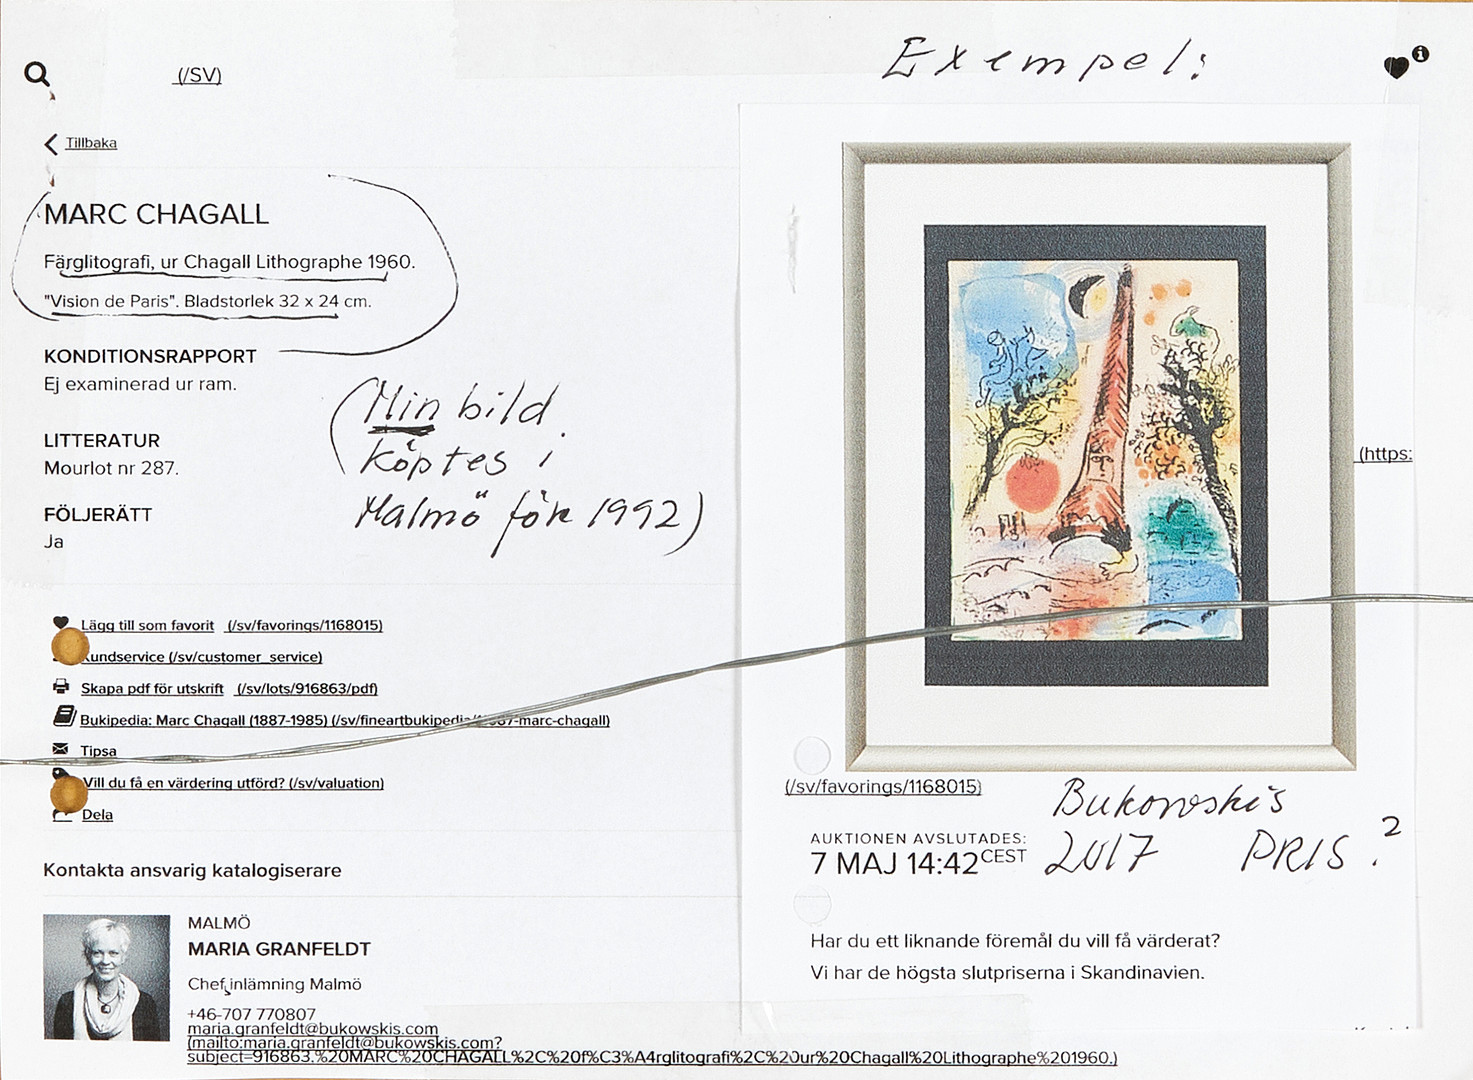 Exempel:
(/SV)
Tillbaka
MARC CHAGALL
Färglitografi, ur Chagall Lithographe 1960.
"Vision de Paris". Bladstorlek 32 x 24 cm.
KONDITIONSRAPPORT
Ej examinerad ur ram.
(Min bild
köptes i
Malmö för 1992)
LITTERATUR
Mourlot nr 287.
FÖLJERÄTT
Ja
(https:
Lägg till som favorit (/sv/favorings/1168015)
Kundservice (/sv/customer_service)
Skapa pdf för utskrift (/sv/lots/916863/pdf)
Bukipedia: Marc Chagall (1887-1985) (/sv/fineartbukipedia/ -marc-chagall)
Tipsa
Vill du få en värdering utförd? (/sv/valuation)
Dela
Kontakta ansvarig katalogiserare
MALMÖ
MARIA GRANFELDT
Chef inlämning Malmö
+46-707 770807
maria.granfeldt@bukowskis.com
(mailto:maria.granfeldt@bukowskis.com?
subject=916863.%20MARC%20CHAGALL%2C%20f%C3%A4rglitografi%2C%20ur%20Chagall%20Lithographe%201960.)
(/sv/favorings/1168015)
Bukowskis
AUKTIONEN AVSLUTADES:
7 MAJ 14:42 CEST 2017 PRIS ?
Har du ett liknande föremål du vill få värderat?
Vi har de högsta slutpriserna i Skandinavien.